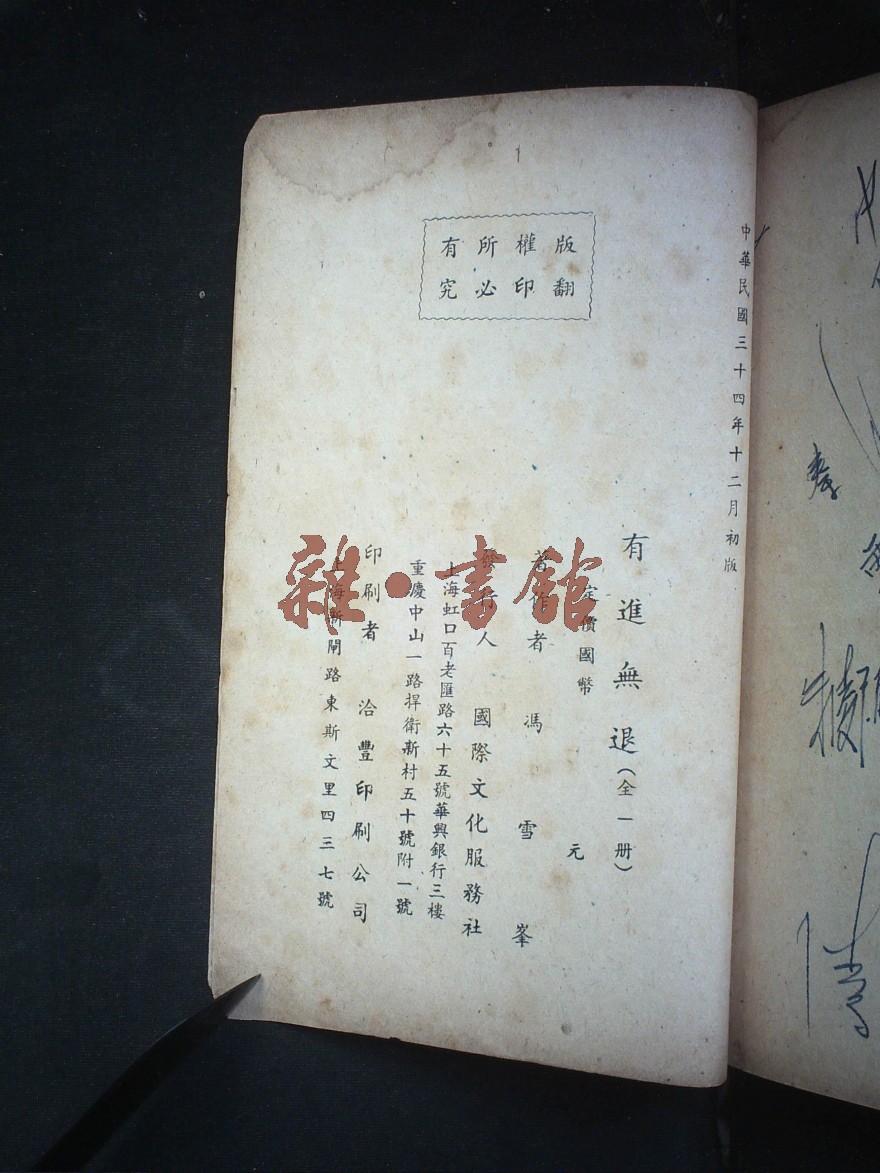 中華民國三十四年十二月初版
版權所有
翻印必究
有進無退（全一册）
定價國幣 元
著作者 馮雪峯
發行人 國際文化服務社
上海虹口百老匯路六十五號華興銀行三樓
重慶中山一路捍衛新村五十號附一號
印刷者 洽豐印刷公司
上海新閘路東斯文里四三七號
雜·書館